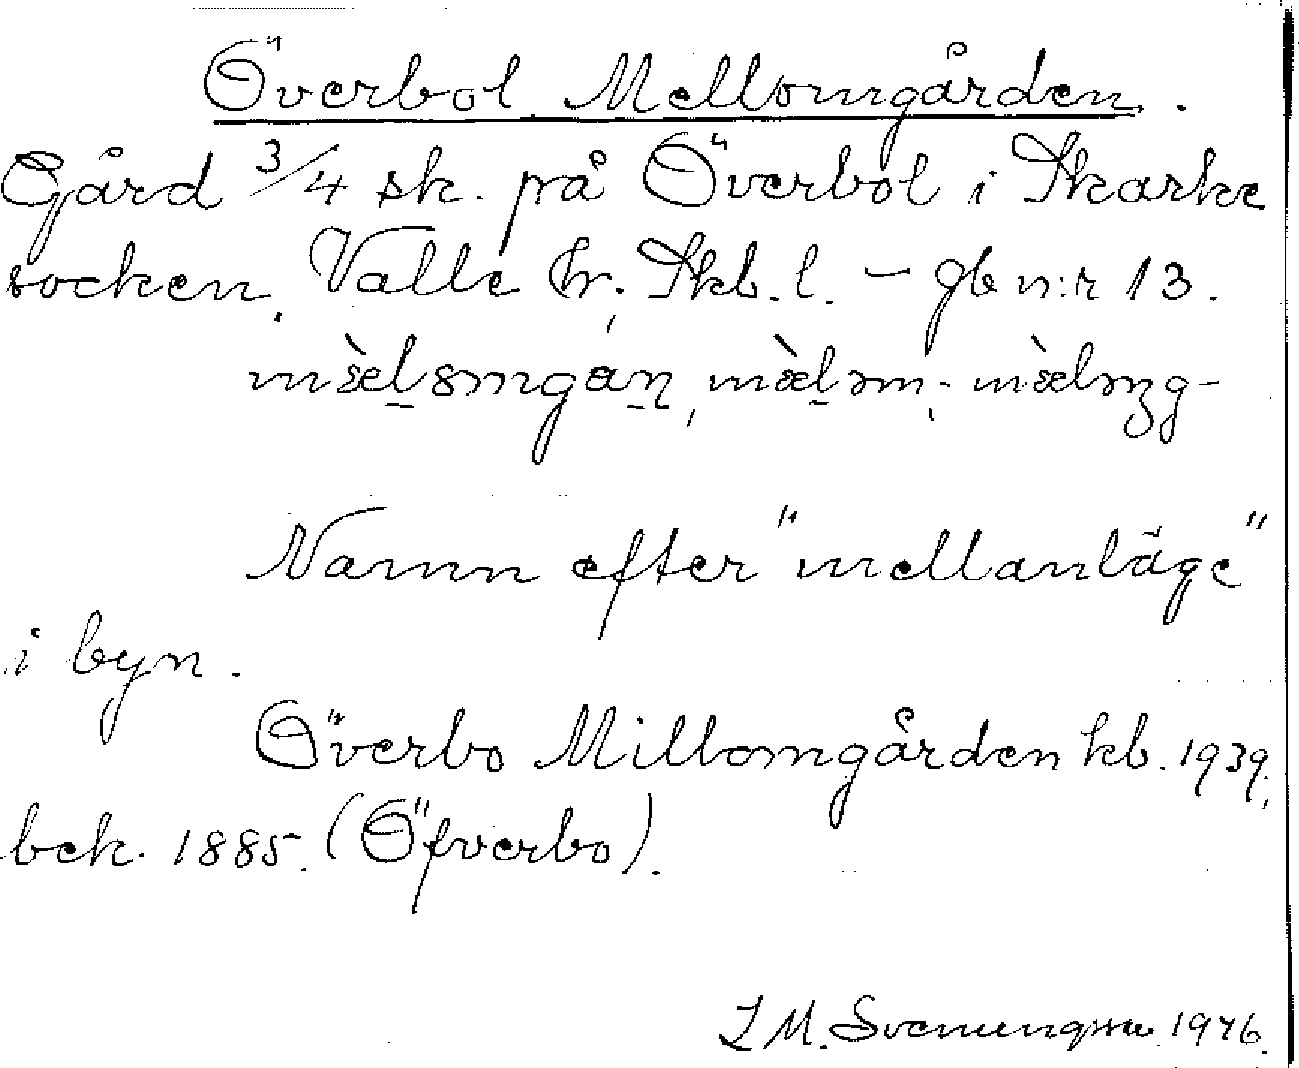 Överbol Mellomgården.
Gård 3/4 sk. på Överbol i Skarke
socken, Valle hr, Skb. l. – gb n:r 13.
Namn efter "mellanläge"
i byn.
Överbo Millomgården kb. 1939,
bek. 1885. (Öfverbo).
I M. Svenungsson 1946.